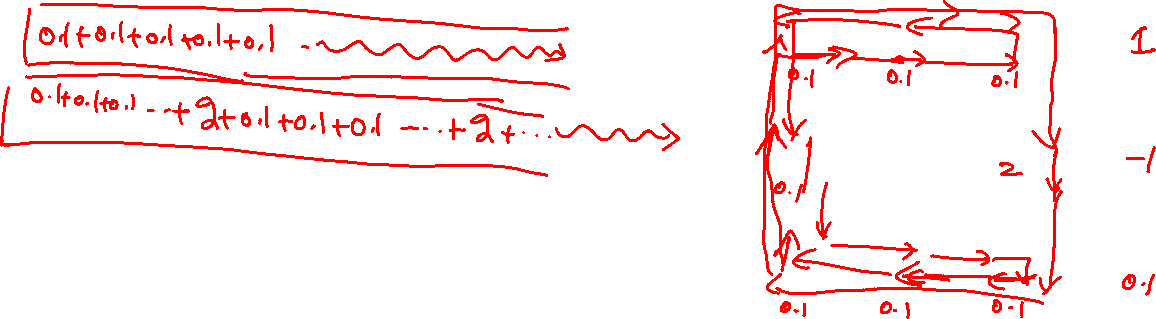 0.1+0.1+0.1+0.1+0.1 -
0.1+0.1+0.1 --+2+0.1+0.1+0.1 ---+2+...
0.1 0.1 0.1
1
0.1 2
-1
0.1 0.1 0.1
0.1